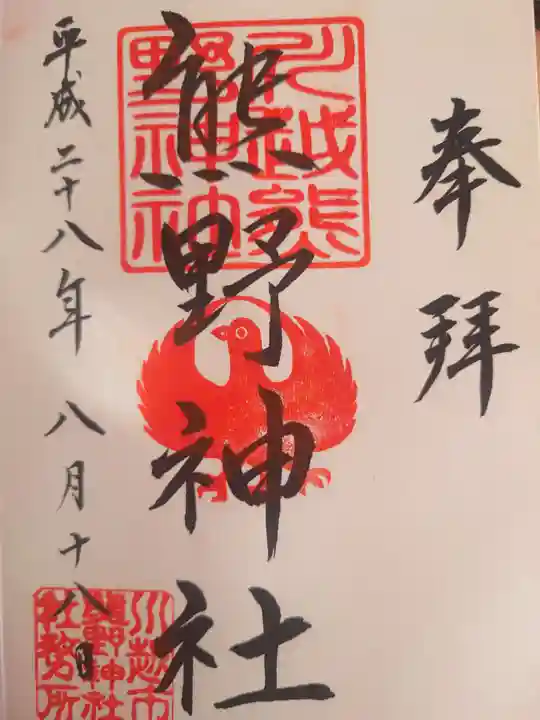 奉拝
熊野神社
平成二十八年 八月十八日
川越熊
野神社
川越市
熊野神社
社務所